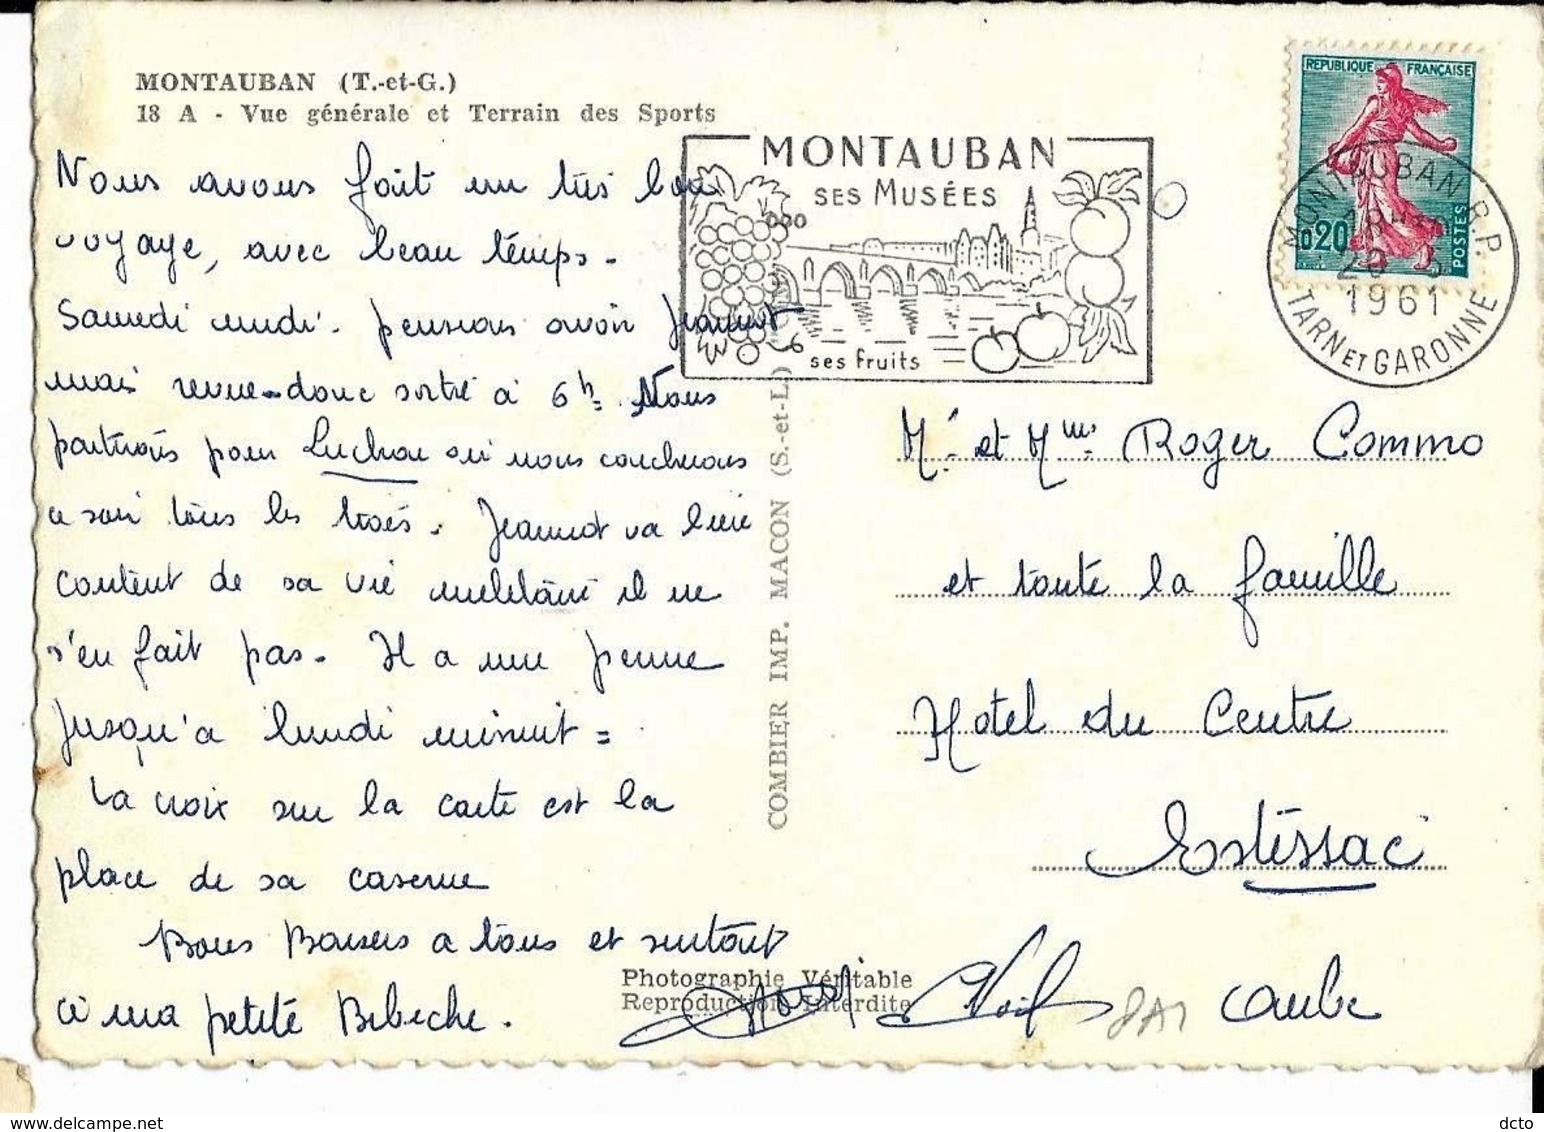 MONTAUBAN (T.-et-G.)
18 A - Vue générale et Terrain des Sports
Nous avons fait un très bon
voyage, avec beau temps.
Samedi midi. pensions avoir Jeannot
mais revue donc sortie à 6h. Nous
partirons pour Luchon où nous coucherons
ce soir tous les trois. Jeannot va bien
content de sa vie militaire il ne
s'en fait pas. Il a une perme
jusqu'à lundi minuit =
La croix sur la carte est la
place de sa caserne
Bons Baisers a tous et surtout
à ma petite Bebiche.
COMBIER IMP. MACON (S.-et-L.)
Photographie Véritable
Reproduction Interdite
MONTAUBAN
SES MUSÉES
ses fruits
REPUBLIQUE FRANÇAISE
0,20
POSTES
MONTAUBAN R.P.
1961
TARN ET GARONNE
Mr et Mme Roger Commo
et toute la famille
Hotel du Centre
Estissac
Aube